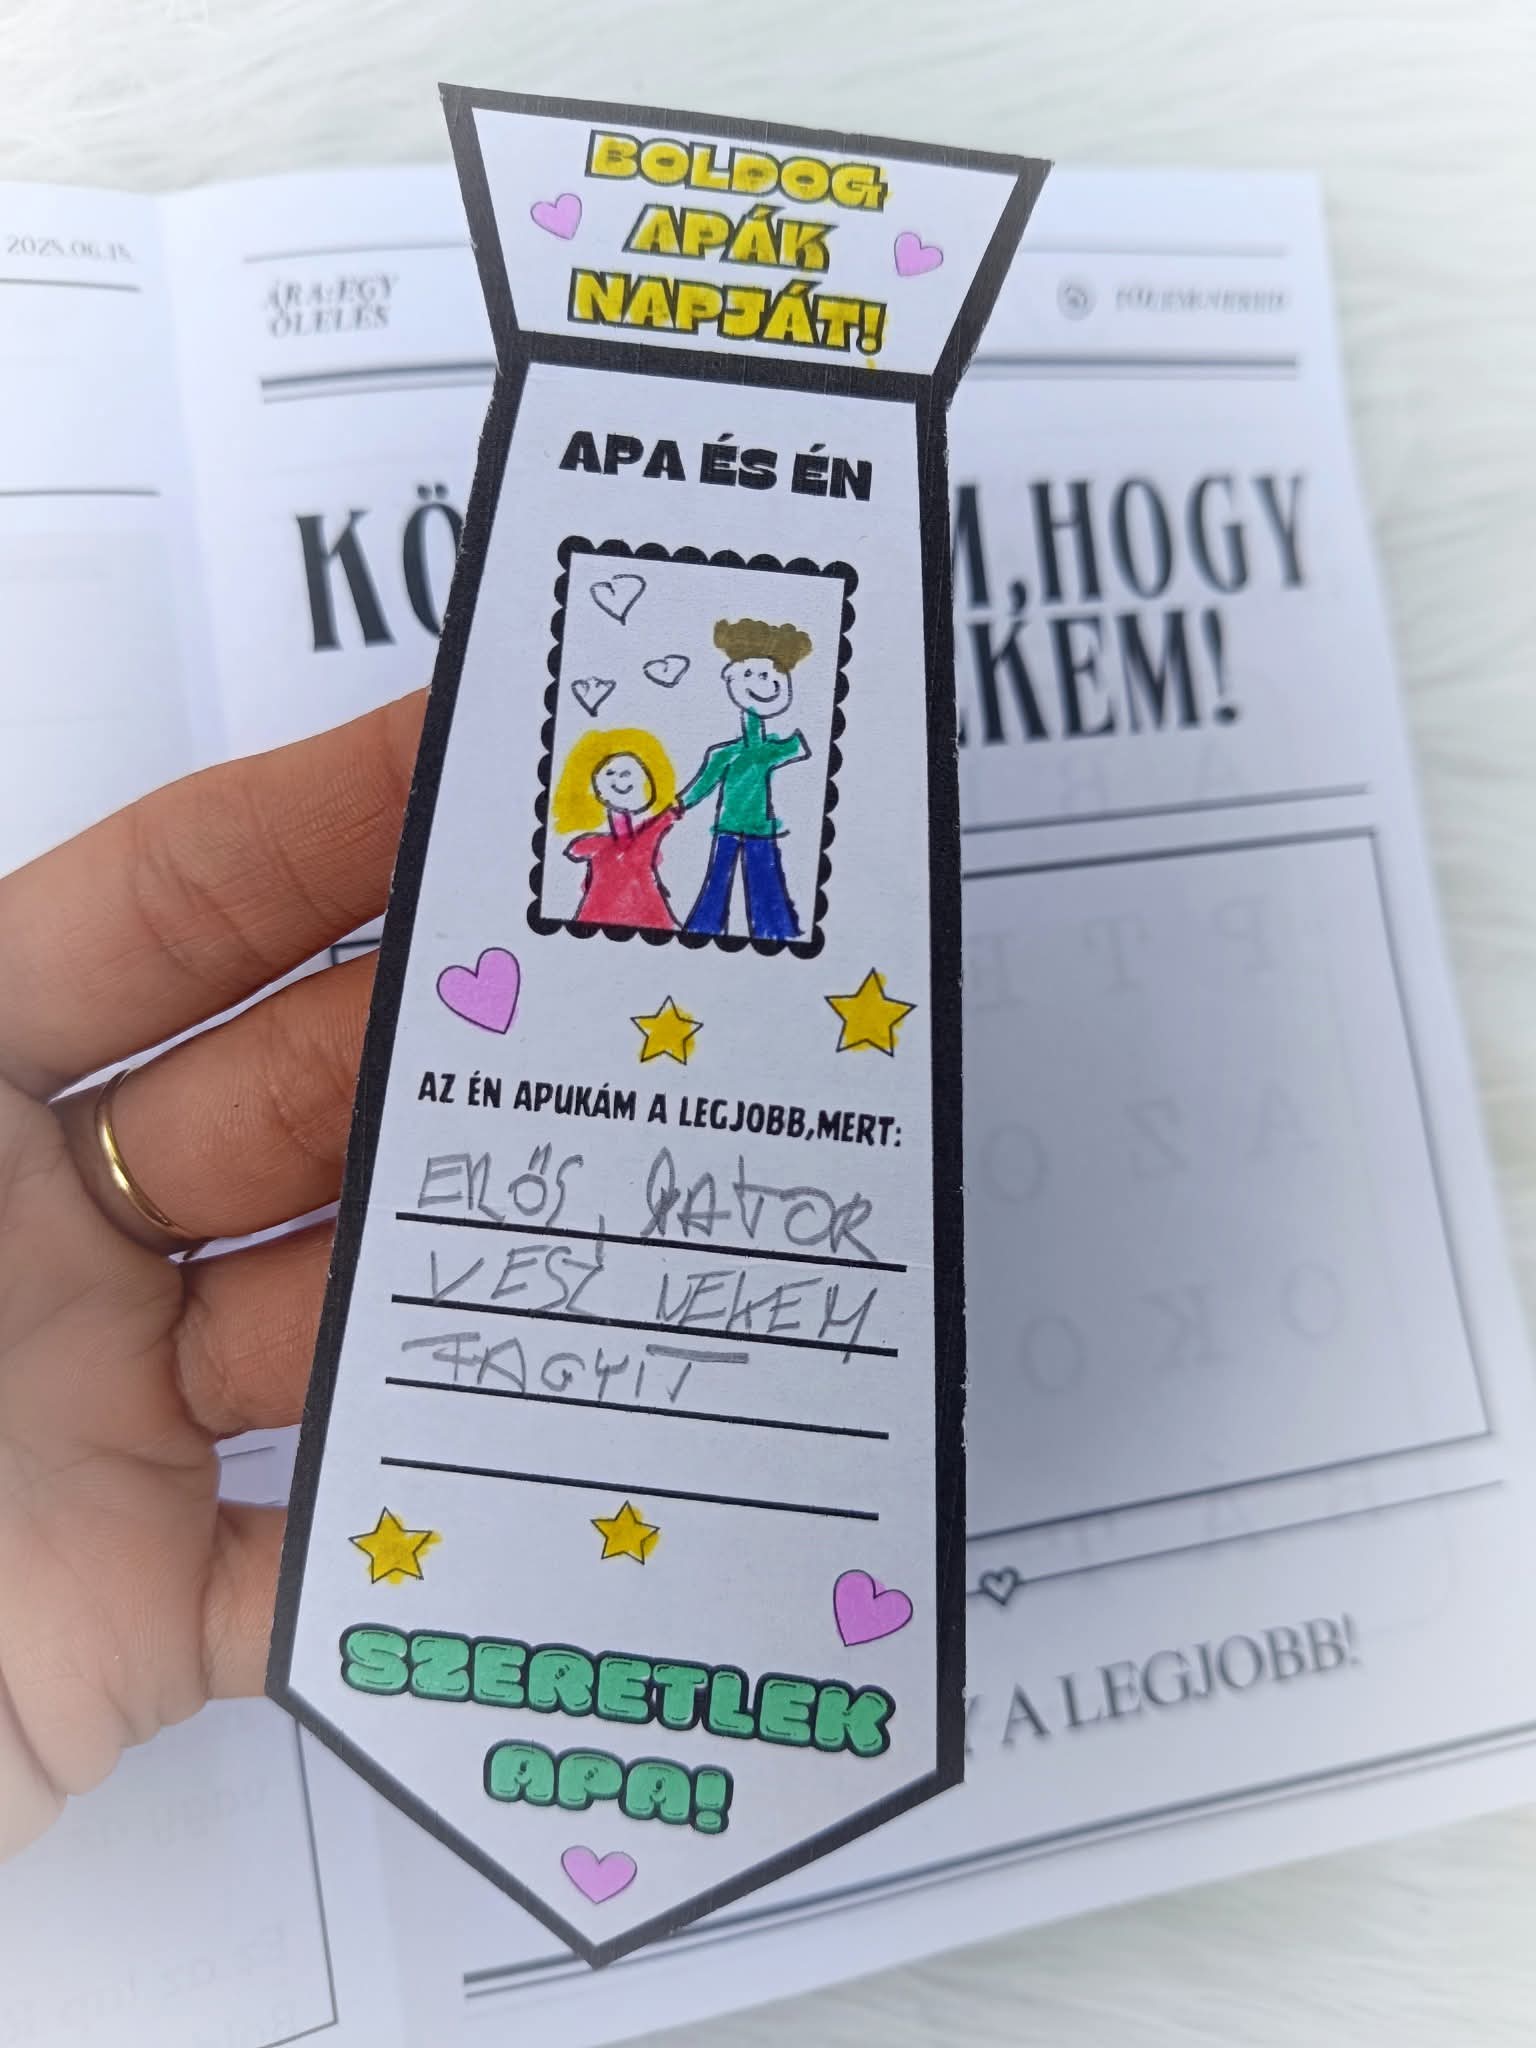 BOLDOG
APÁK
NAPJÁT!
APA ÉS ÉN
AZ ÉN APUKÁM A LEGJOBB,MERT:
ERŐS, BÁTOR
VESZ NEKEM
FAGYIT
SZERETLEK
APA!
2025.06.15.
ÁRA:EGY
ÖLELÉS
KÖ M,HOGY
KEM!
A LEGJOBB!